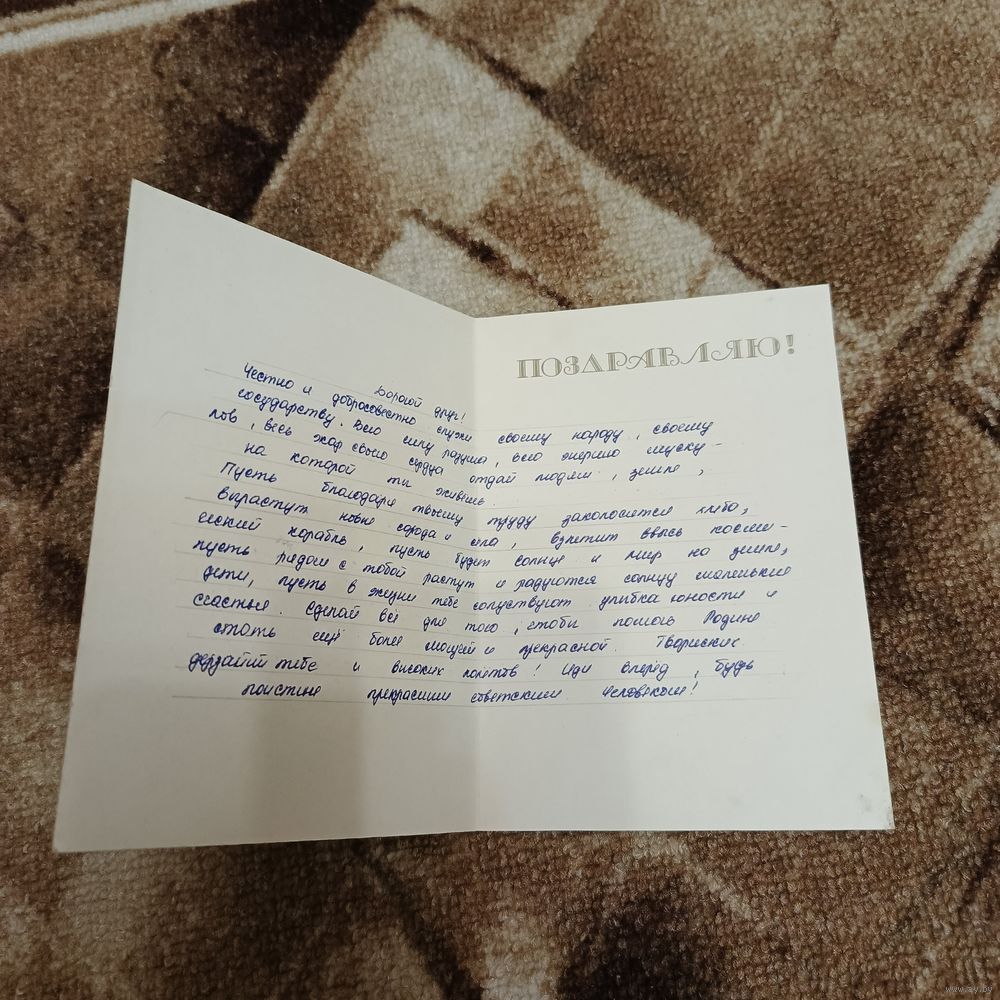 ПОЗДРАВЛЯЮ!
Дорогой друг!
Честно и добросовестно служи своему народу, своему
государству. Всю силу разума, всю энергию муску-
лов, весь жар своего сердца отдай людям, земле,
на которой ты живёшь.
Пусть благодаря твоему труду заколосятся хлеба,
вырастут новые города и сёла, взлетит ввысь косми-
ческий корабль, пусть будет солнце и мир на земле,
пусть рядом с тобой растут и радуются солнцу маленькие
дети, пусть в жизни тебе сопутствуют улыбка юности и
счастье. Сделай всё для того, чтобы помочь Родине
стать ещё более мощней и прекрасной. Творческих
дерзаний тебе и высоких полётов! Иди вперёд, будь
поистине прекрасным советским человеком!